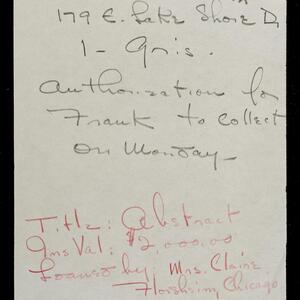 179 E. Lake Shore D,
1 - Gris.
Authorization for
Frank to collect
on Monday-
Title: Abstract
Ins Val: $2,000.00
Loaned by: Mrs. Claire
Florsheim, Chicago